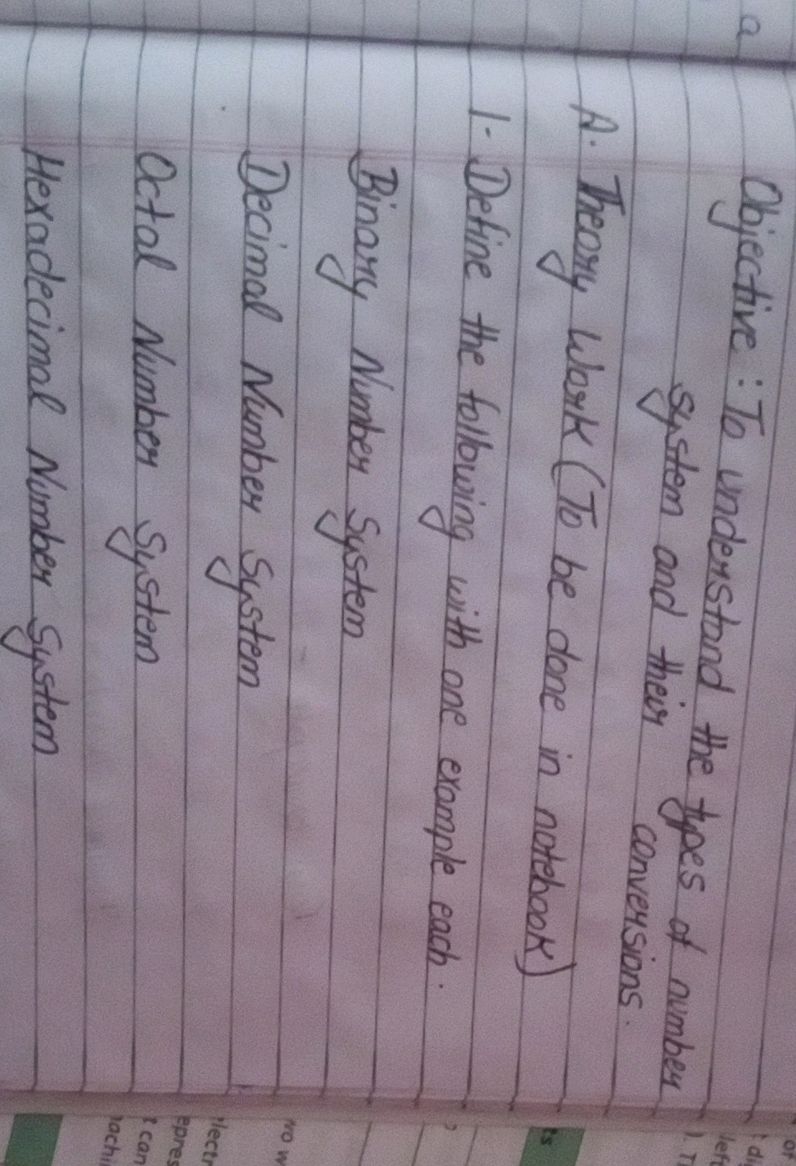 a
Objective : To understand the types of number
system and their conversions.
A. Theory Work (To be done in notebook)
1- Define the following with one example each.
Binary Number System
Decimal Number System
Octal Number System
Hexadecimal Number System
of
left
1. T
ts
now
lectr
epres
t can
achi